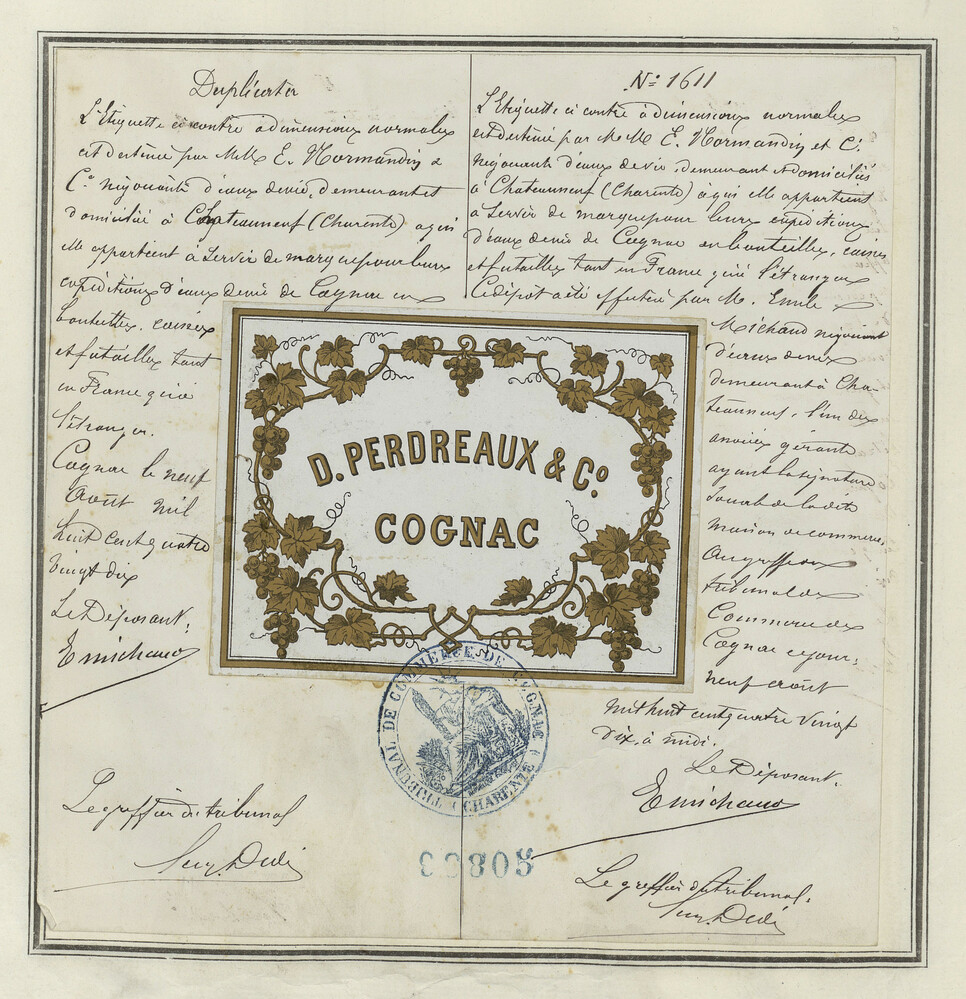 Duplicata
L'Etiquette ci contre à dimensions normales
est destinée par M.M. E. Normandin &
Cº négociants d'eaux devie, demeurant et
domicilié à Chateauneuf (Charente) à qui
elle appartient à servir de marque pour leurs
expéditions d'eaux devie de Cognac en
bouteilles, caisses
et futailles tant
en France qu'à
l'étranger.
Cognac le neuf
Août mil
huit cent quatre
vingt dix
Le Déposant,
E Michaud
Le greffier du tribunal
Nº 1611
L'Etiquette ci contre à dimensions normales
est destinée par M.M. E. Normandin et Cº
négociants d'eaux de vie, demeurant et domiciliés
à Chateauneuf (Charente) à qui elle appartient
à servir de marque pour leurs expéditions
d'eaux devie de Cognac en bouteilles, caisses
et futailles tant en France qu'à l'étranger
Ce dépôt a été effectué par M. Emile
Michaud négociant
d'eaux devie
demeurant à Cha-
teauneuf, l'un des
associés gérants
ayant la signature
sociale de la dite
maison de commerce,
Au greffe du
tribunal de
Commerce de
Cognac ce jour,
neuf août
mil huit cent quatre vingt
dix, à midi.
Le Déposant,
E Michaud
Le greffier du tribunal,
D. PERDREAUX & Cº
COGNAC
TRIBUNAL DE COMMERCE DE COGNAC
(CHARENTE)